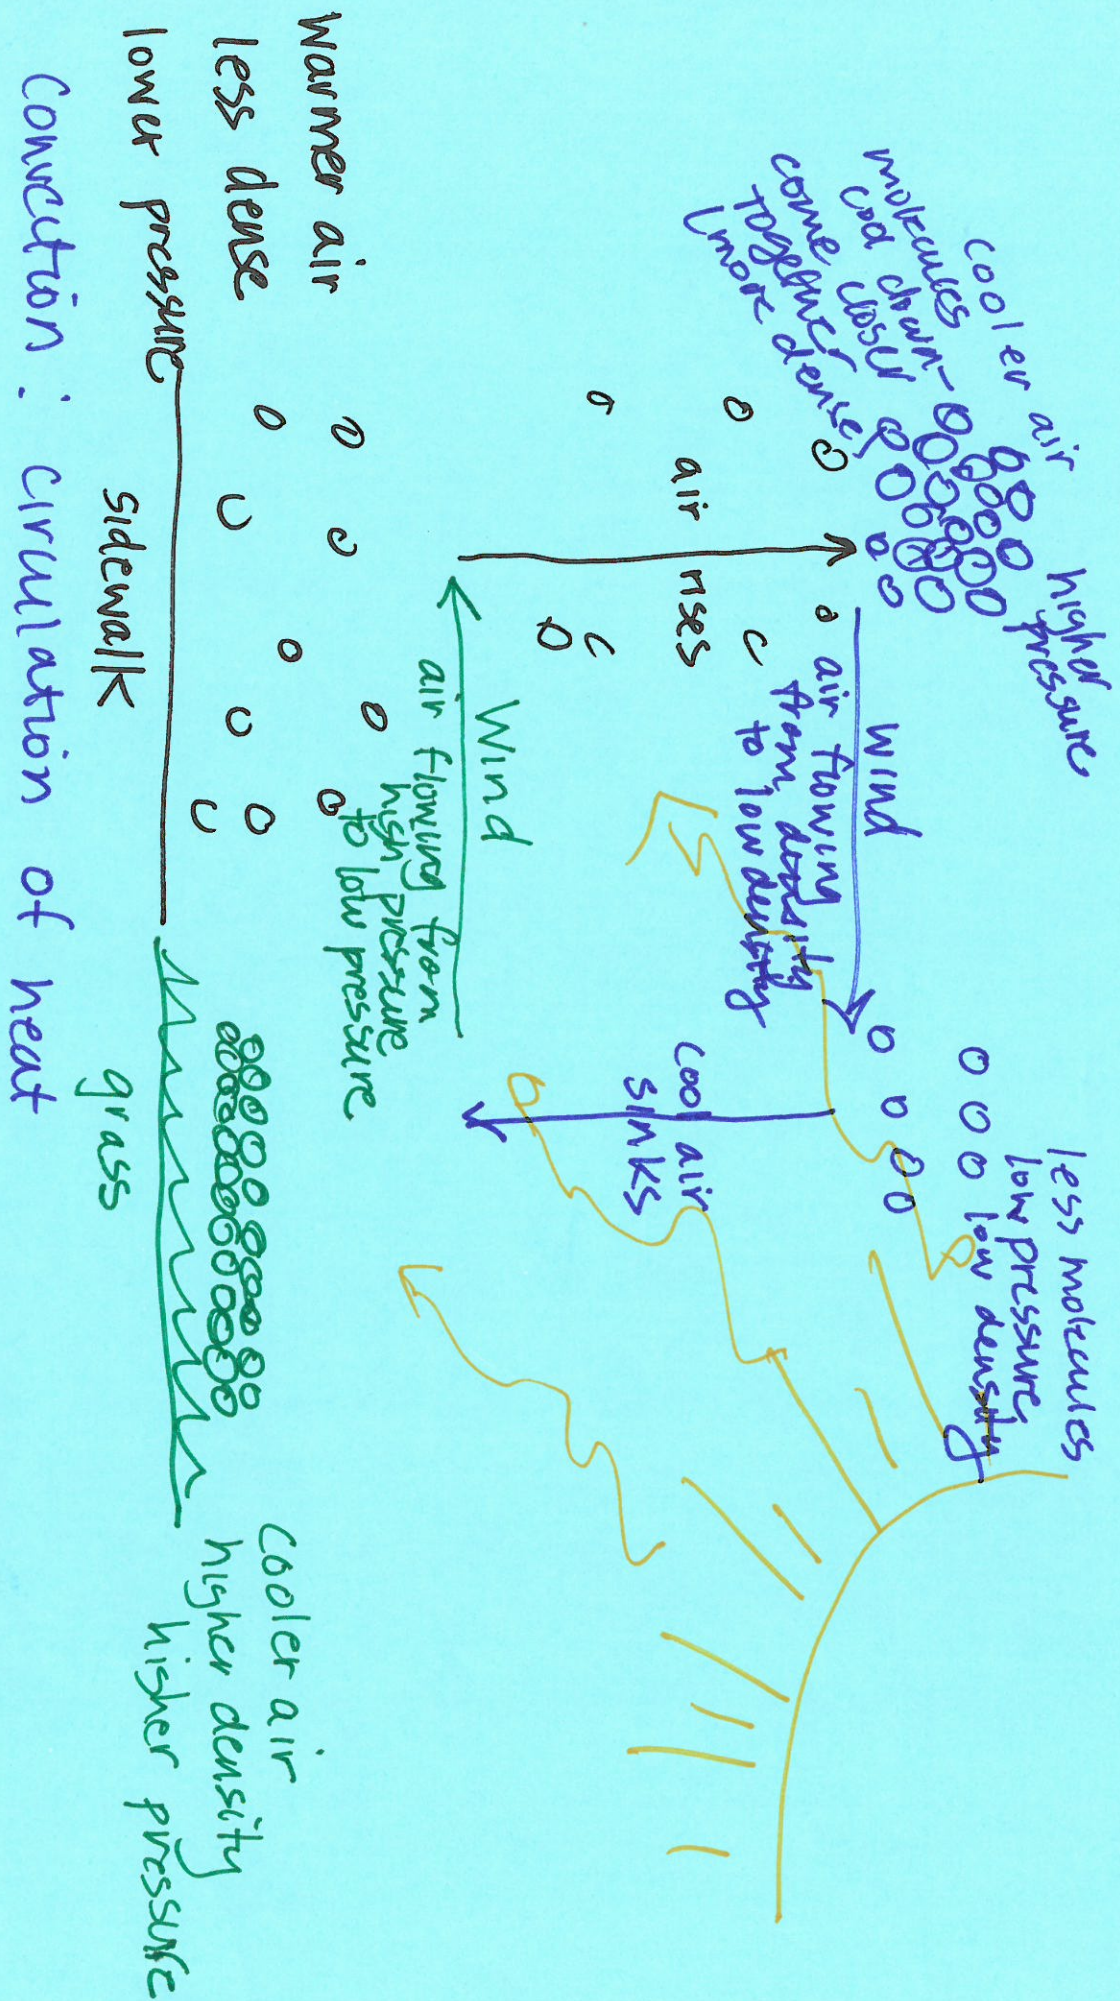 cooler air
molecules
cool down-
come closer
together
(more dense)
higher
pressure
less molecules
low pressure
low density
wind
air flowing
from density
to low density
air rises
cool air
sinks
Wind
air flowing from
high pressure
to low pressure
warmer air
less dense
lower pressure
sidewalk
grass
cooler air
higher density
higher pressure
Convection : circulation of heat